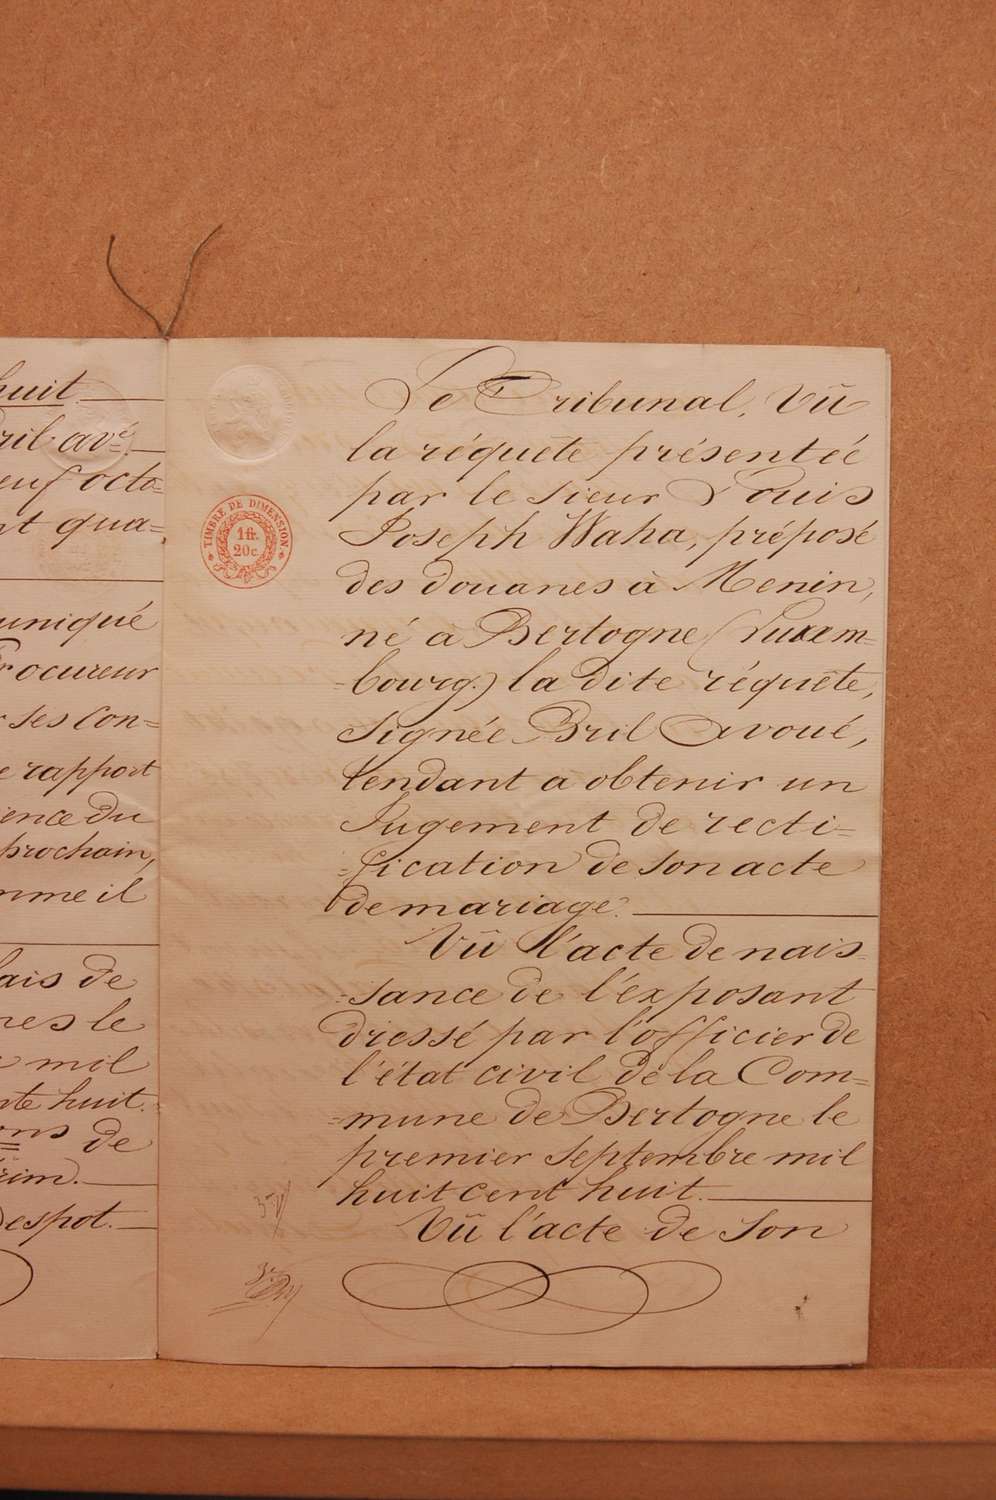 huit
ril avé.
euf octo=
nt qua=
uniqué
Procureur
r ses Con=
e rapport
ience du
prochain,
mme il
lais de
nes le
mil
nte huit.
ons de
rim.
Despot.
TIMBRE DE DIMENSION
1 fr.
20 c.
Le Tribunal, Vû
la réquête présentée
par le sieur Louis
Joseph Waha, préposé
des douanes à Menin,
né a Bertogne (Luxem=
=bourg.) la dite réquête,
signée Bril avoué,
tendant a obtenir un
Jugement de recti=
=fication de son acte
de mariage.
Vû l'acte de nais=
=sance de l'exposant
dressé par l'officier de
l'état civil de la Com=
=mune de Bertogne le
premier septembre mil
huit cent huit.
Vû l'acte de Son